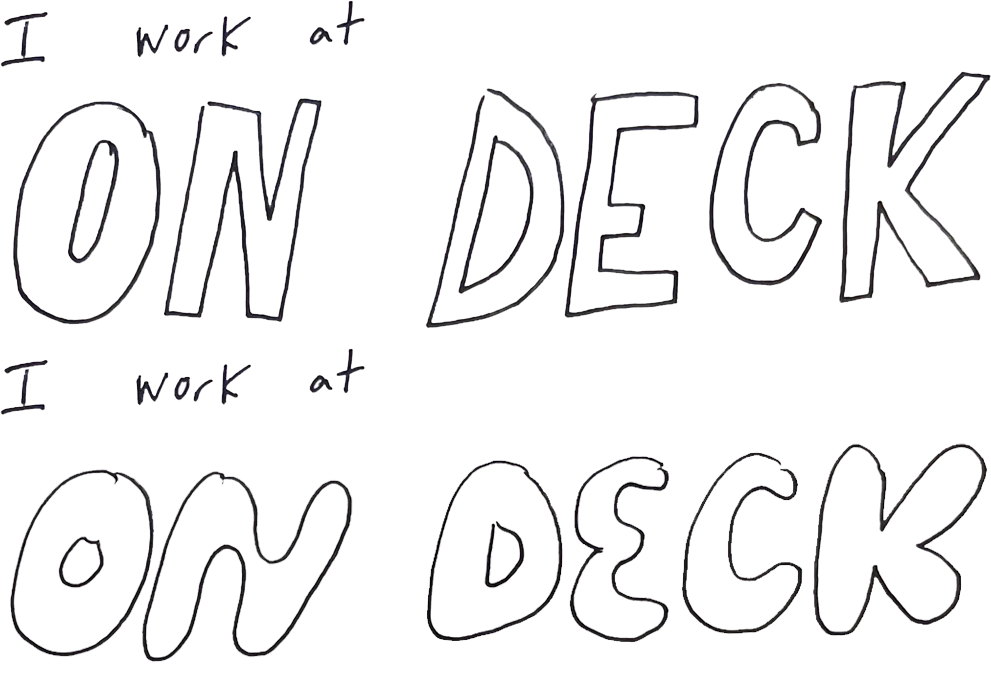 I work at
ON DECK
I work at
ON DECK